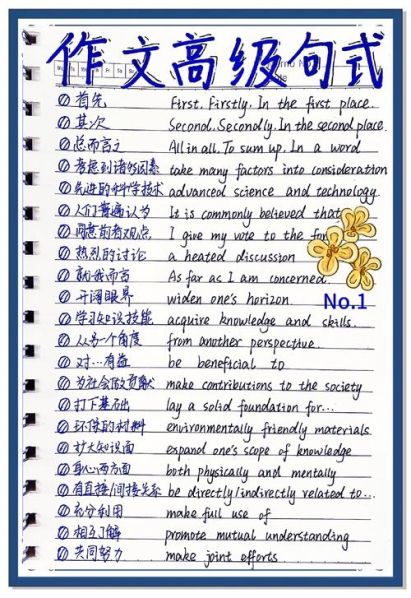 作文高级句式
⊘ 首先 First. Firstly. In the first place.
⊘ 其次 Second. Secondly. In the second place.
⊘ 总而言之 All in all. To sum up. In a word
⊘ 考虑到诸多因素 take many factors into consideration
⊘ 先进的科学技术 advanced science and technology
⊘ 人们普遍认为 It is commonly believed that
⊘ 同意前者观点 I give my vote to the
⊘ 热烈的讨论 a heated discussion
⊘ 就我而言 As far as I am concerned.
⊘ 开阔眼界 widen one's horizon.
No.1
⊘ 学习知识技能 acquire knowledge and skills.
⊘ 从另一个角度 from another perspective.
⊘ 对…有益 be beneficial to
⊘ 为社会做贡献 make contributions to the society
⊘ 打下基础 lay a solid foundation for...
⊘ 环保的材料 environmentally friendly materials
⊘ 扩大知识面 expand one's scope of knowledge
⊘ 身心两方面 both physically and mentally
⊘ 有直接/间接关系 be directly/indirectly related to...
⊘ 充分利用 make full use of
⊘ 相互了解 promote mutual understanding
⊘ 共同努力 make joint efforts